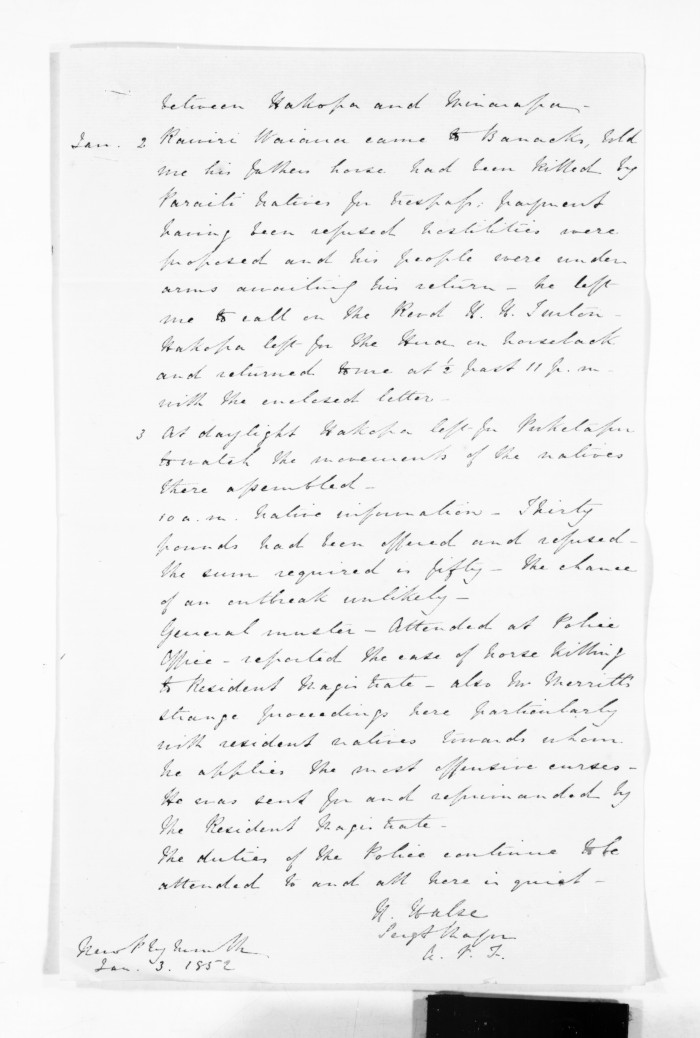 between Hakopa and Minarapa -
Jan. 2 Rawiri Waiaua came to Barracks, told
me his fathers horse had been killed by
Paraiti natives for trespass: payment
having been refused hostilities were
proposed and his people were under
arms awaiting his return - he left
me to call on the Revd H. H. Turton -
Hakopa left for the Hua on horseback
and returned to me at ½ past 11 p.m.
with the enclosed letter -
3 At daylight Hakopa left for Puketapu
to watch the movements of the natives
there assembled -
10 a.m. native information - Thirty
pounds had been offered and refused -
the sum required is fifty - the chance
of an outbreak unlikely -
General muster - Attended at Police
Office - reported the case of horse killing
to Resident Magistrate - also Mr Merritt's
strange proceedings here particularly
with resident natives towards whom
he applies the most offensive curses -
He was sent for and reprimanded by
the Resident Magistrate -
The duties of the Police continue to be
attended to and all here is quiet -
H. Halse
Sergt Major
A. P. F.
New Plymouth
Jan. 3. 1852